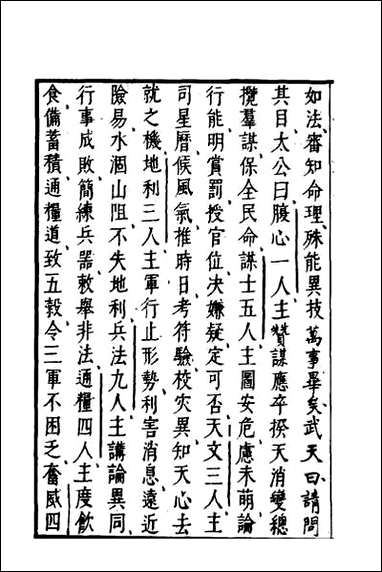 如法審知命理殊能異技萬事畢矣武天曰請問
其目太公曰腹心一人主贊謀應卒揆天消變總
攬羣謀保全民命謀士五人主圖安危慮未萌論
行能明賞罰授官位決嫌疑定可否天文三人主
司星曆候風氣推時日考符驗校灾異知天心去
就之機地利三人主軍行止形勢利害消息遠近
險易水涸山阻不失地利兵法九人主講論異同
行事成敗簡練兵器敹舉非法通糧四人主度飲
食備蓄積通糧道致五穀令三軍不困乏奮威四